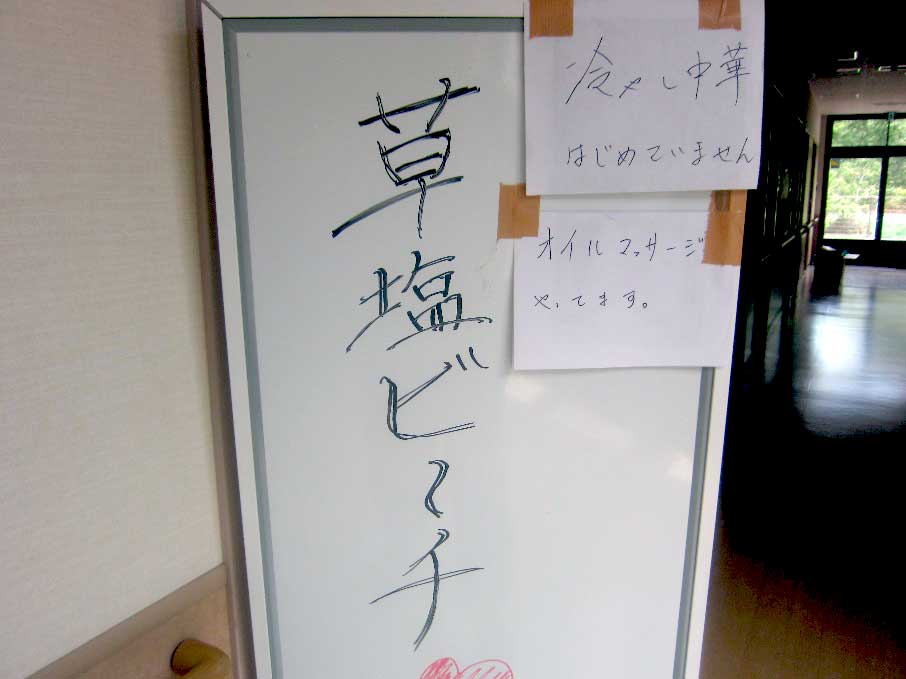 草塩ビーチ
冷やし中華
はじめていません
オイルマッサージ
やってます。